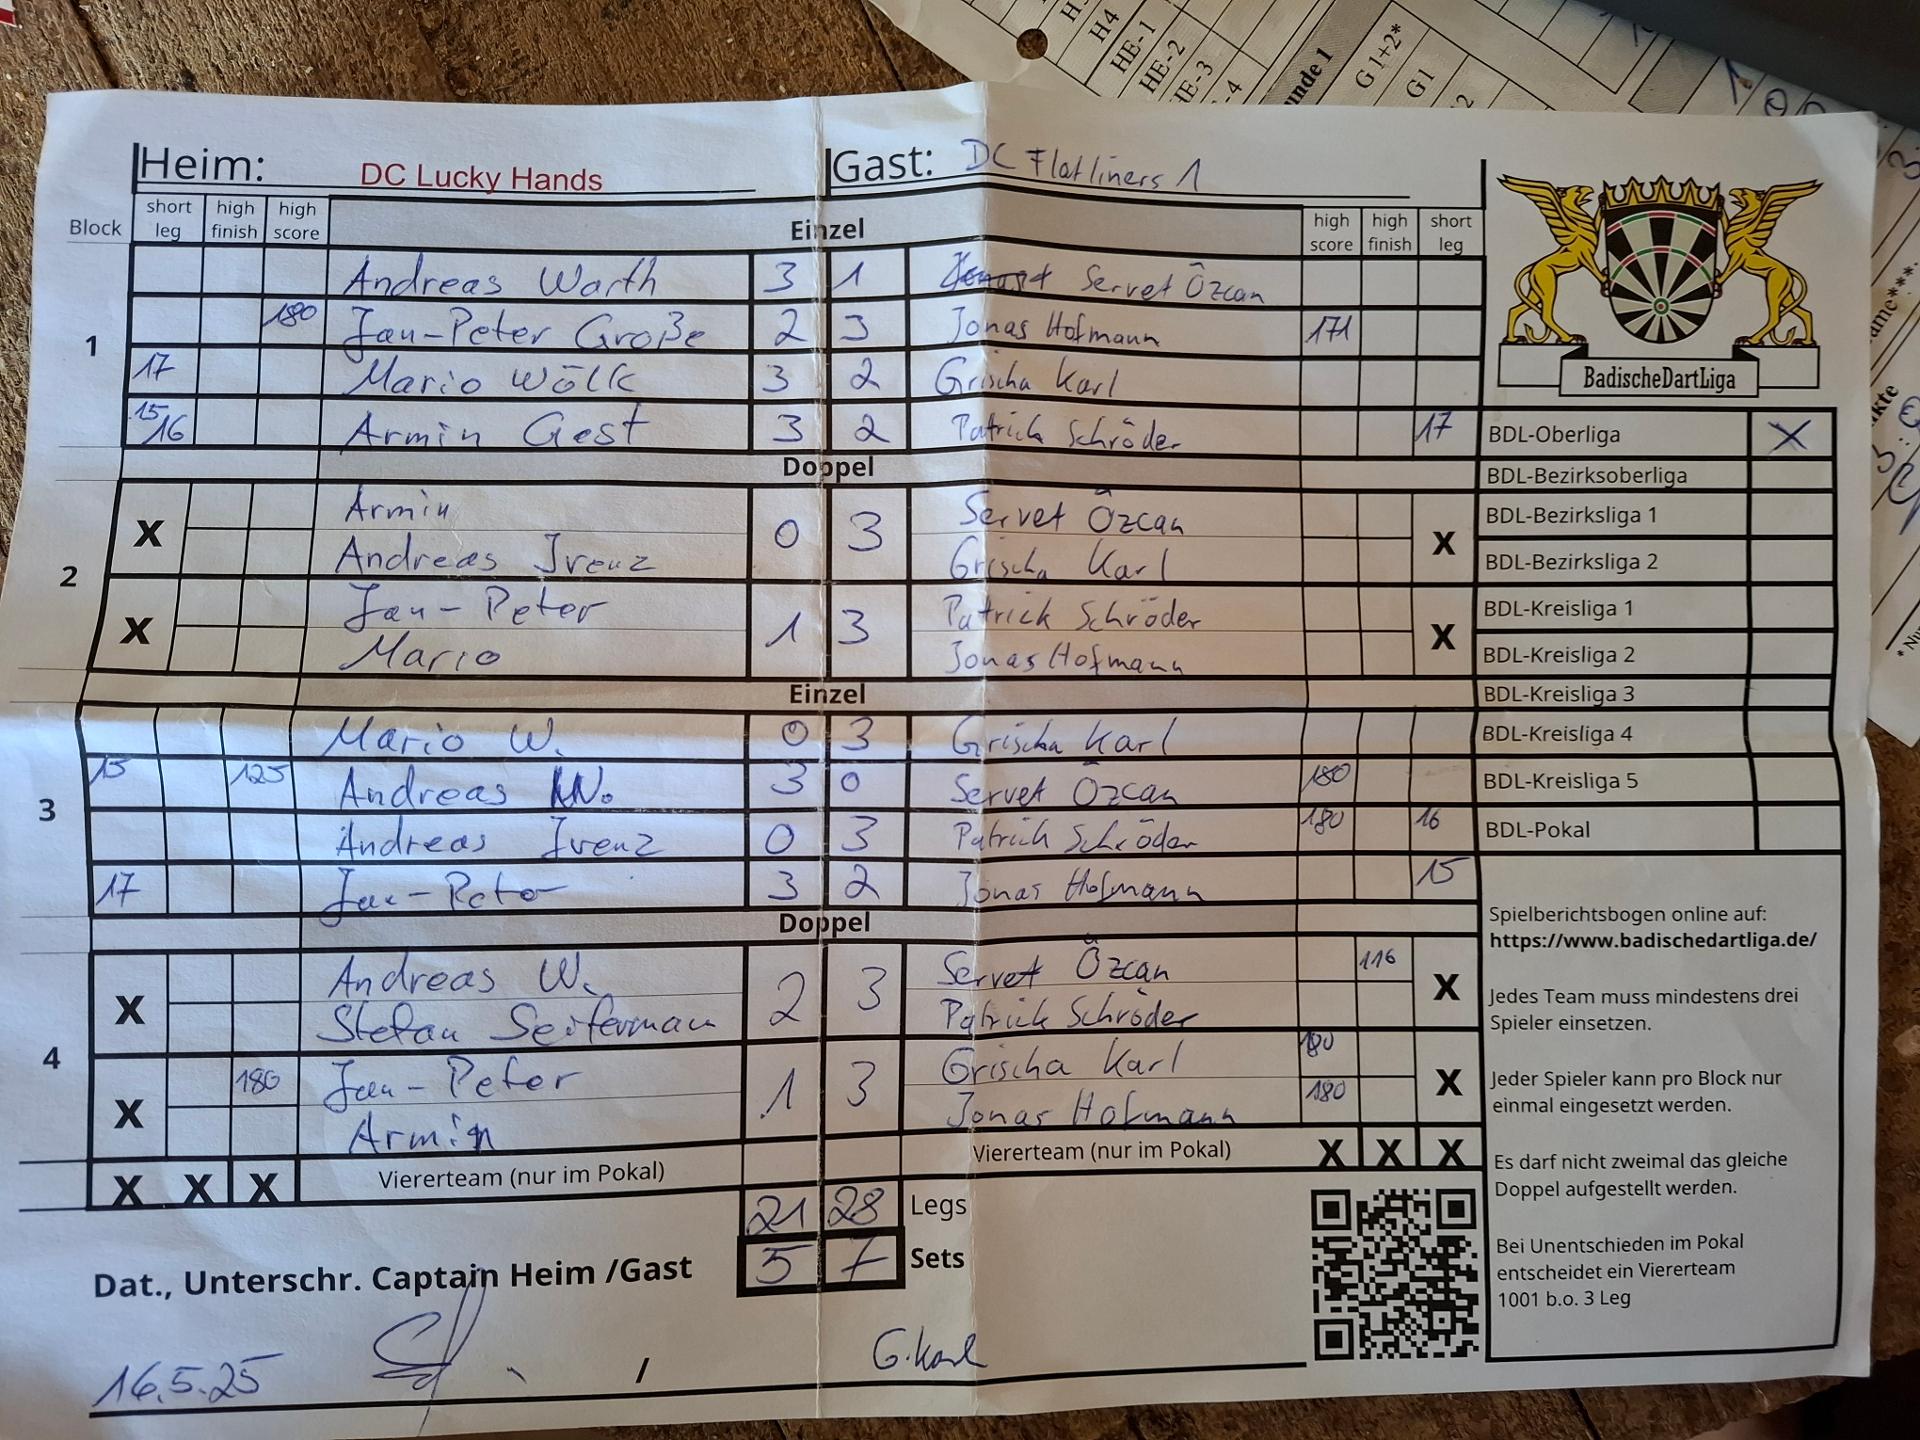 Heim: DC Lucky Hands Gast: DC Flatliners 1
Block short leg high finish high score Einzel high score high finish short leg
1
Andreas Warth 3 1 Servet Özcan
180 Jan-Peter Große 2 3 Jonas Hofmann 171
17 Mario Wölk 3 2 Grischa Karl
15 16 Armin Gest 3 2 Patrick Schröder 17
Doppel
2
X Armin 0 3 Servet Özcan X
Andreas Irenz Grischa Karl
X Jan-Peter 1 3 Patrick Schröder X
Mario Jonas Hofmann
Einzel
3
Mario W. 0 3 Grischa Karl
15 125 Andreas W. 3 0 Servet Özcan 180
Andreas Irenz 0 3 Patrick Schröder 180 16
17 Jan-Peter 3 2 Jonas Hofmann 15
Doppel
4
X Andreas W. 2 3 Servet Özcan 116 X
Stefan Seifermann Patrick Schröder
X 180 Jan-Peter 1 3 Grischa Karl 180 X
Armin Jonas Hofmann 180
X X X Viererteam (nur im Pokal) Viererteam (nur im Pokal) X X X
21 28 Legs
5 7 Sets
Dat., Unterschr. Captain Heim /Gast
16.5.25 / G.Karl
BadischeDartLiga
BDL-Oberliga X
BDL-Bezirksoberliga
BDL-Bezirksliga 1
BDL-Bezirksliga 2
BDL-Kreisliga 1
BDL-Kreisliga 2
BDL-Kreisliga 3
BDL-Kreisliga 4
BDL-Kreisliga 5
BDL-Pokal
Spielberichtsbogen online auf:
https://www.badischedartliga.de/
Jedes Team muss mindestens drei
Spieler einsetzen.
Jeder Spieler kann pro Block nur
einmal eingesetzt werden.
Es darf nicht zweimal das gleiche
Doppel aufgestellt werden.
Bei Unentschieden im Pokal
entscheidet ein Viererteam
1001 b.o. 3 Leg
H4
HE-1
HE-2
HE-3
G 1+2*
G1